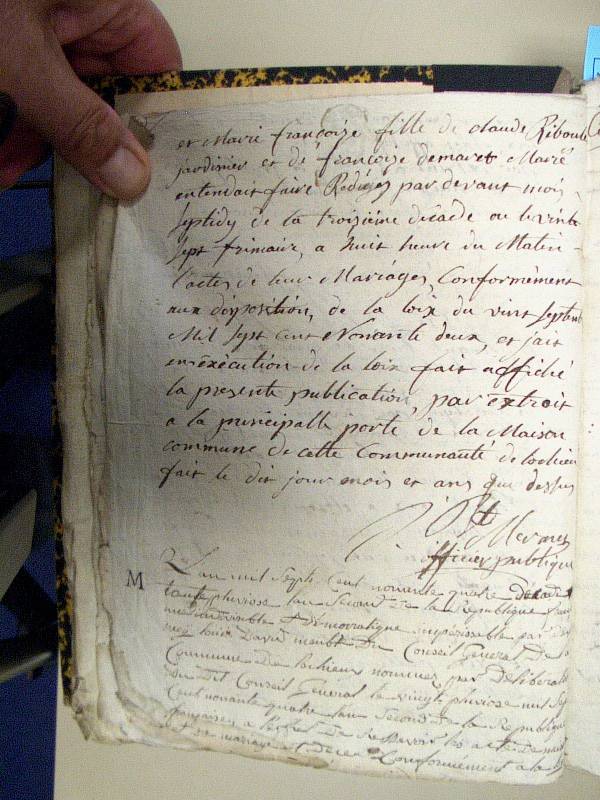 et Marie francoize fille de claude Riboule
jardinier et de francoize demaret Marié
entendait faire Rediger par devant moi
septidy de la troisieme decade ou le vint
sept frimaire, a huit heure du Matin
l'actes de leur Mariages, Conformément
aux disposition, de la loix du vint septemb
Mil sept cent Nonante deux, et jait
en exécution de la loix fait affiché
la presente publication, par extrait
a la principalle porte de la Maison
commune de cette Communauté de lochieu
fait le dit jour mois et ans que dessus
officier publique
M
L'an mil sept cent nonante quatre
pluviose lan second de la Republique
indivisible et democratique imperissable par
moy louis David membre du Conseil General de la
Commune de lochieux nommer par deliberati
du Dit Conseil General le vingt pluviose mil sept
Cent nonante quatre lan second de la Republique
francaise a de Recevoir les acte de
mariage et deces Conformement a la